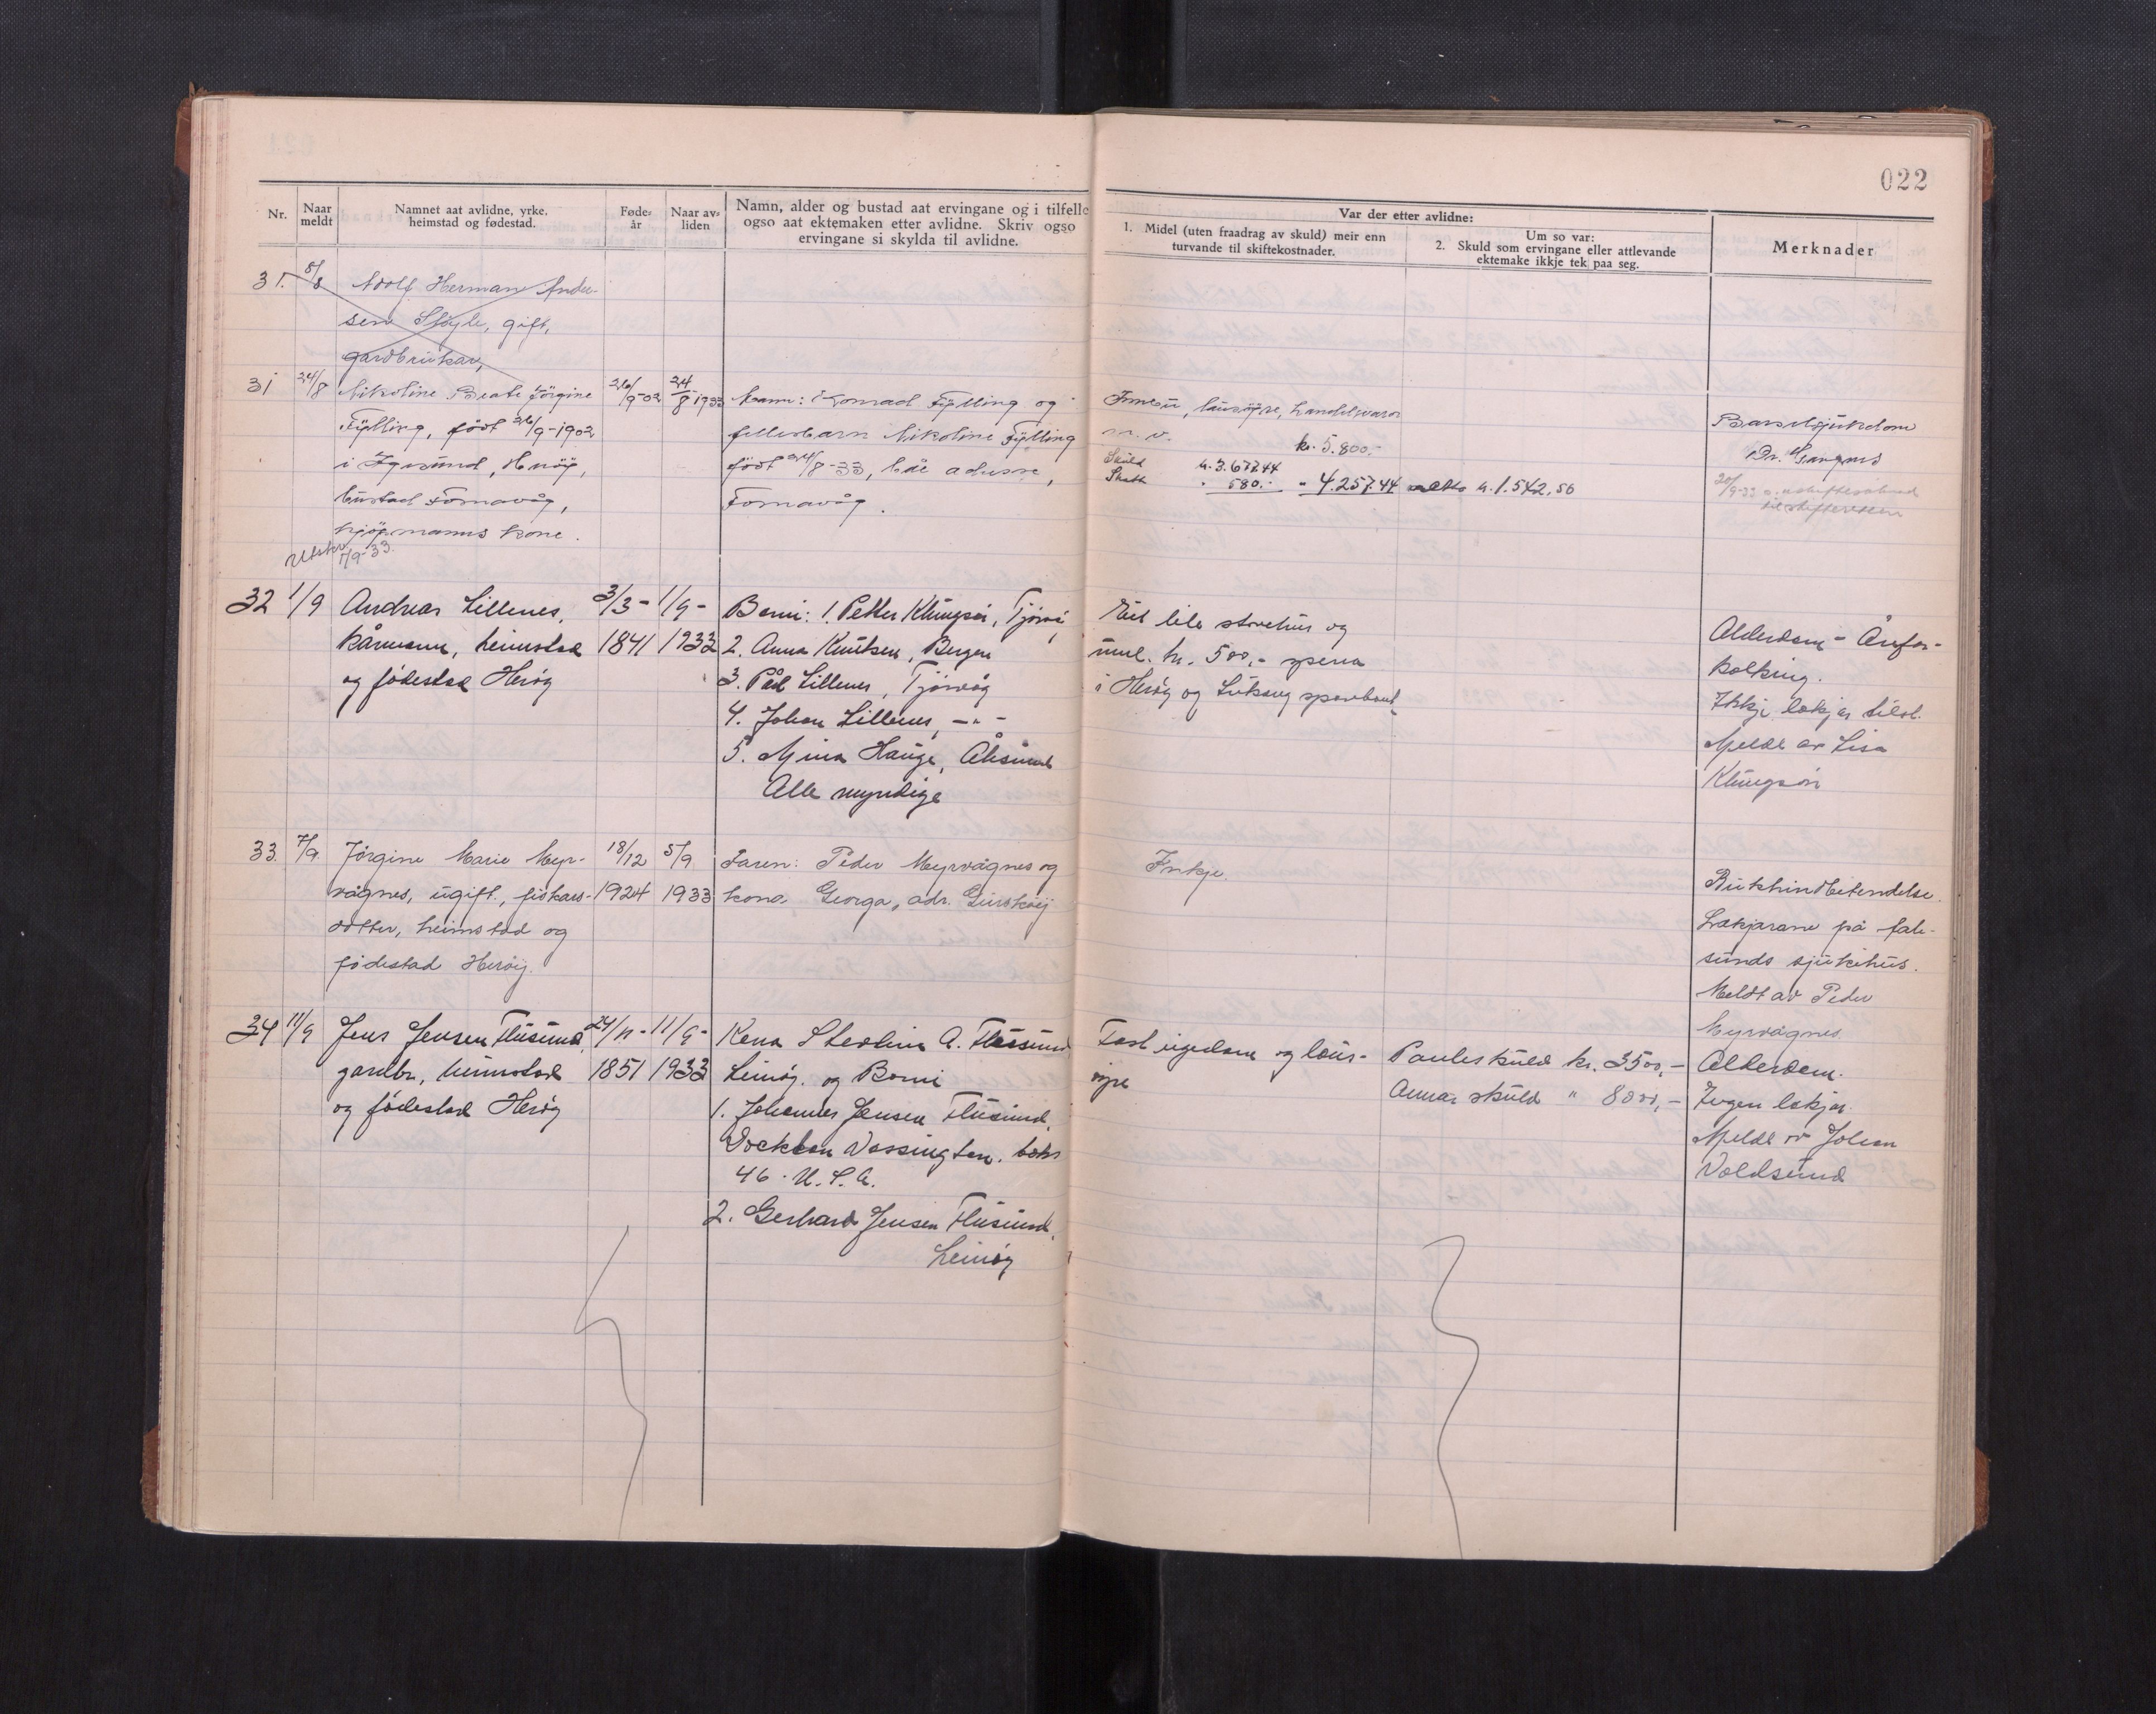 022
Nr.
Naar meldt
Namnet aat avlidne, yrke, heimstad og fødestad.
Føde-år
Naar av-liden
Namn, alder og bustad aat ervingane og i tilfelle ogso aat ektemaken etter avlidne. Skriv ogso ervingane si skylda til avlidne.
Var der etter avlidne:
1. Midel (uten fraadrag av skuld) meir enn turvande til skiftekostnader.
Um so var:
2. Skuld som ervingane eller attlevande ektemake ikkje tek paa seg.
Merknader
31. 8/8 Adolf Herman Ander-
sen Støyle, gift,
gardbrukar,
31 24/8 Nikoline Beate Jörgine 26/9-02 24/8-1933 Mann: Konrad Fylling og
Fylling, født 26/9-1902 fellesbarn Nikoline Fylling
i Herøy, født 24/8-33, både adresse,
bustad Fosnavåg, Fosnavåg.
kjøpmanns kone.
1/9-33.
Innbu, lausøyre, handelsvaror
m. v. kr. 5.800.-
Skuld kr. 3.677.44
Skatt " 580.- " 4.257.44 netto kr. 1.542,56
Barselsjukdom
Dr.
20/9-33
32 1/9 Andreas Lillenes, 3/3- 1/9- Born: 1. Petter Klungsör,
kårmann, heimstad 1841 1933 2. Anna Knutsen, Bergen
og fødestad Herøy 3. Pål Lillenes, Tjørvåg
4. Johan Lillenes, -"-
5. Mina Hauge, Ålesund
Alle myndige
Eit lite stovehus og
uml. kr. 500,- spena
i Herøy og Leikong sparebank
Alderdom - Årefor-
kalking.
Ikkje lækjar tilst.
Meldt av Lisa
Klungsör
33. 7/9 Jörgine Marie Myr- 18/12 5/9 Faren: Peder Myrvågnes og
vågnes, ugift, fiskars- 1924 1933 kona Georga, adr. Gurskøy
dotter, heimstad og
fødestad Herøy.
Inkje.
Bukhinnebetendelse.
Lækjarane på Åle-
sunds sjukehus.
Meldt av Peder
Myrvågnes.
34 11/9 Jens Jensen Flusund, 24/11- 11/9- Kona A. Flusund
gardbr, heimstad 1851 1933 Leinøy. og Born:
og fødestad Herøy 1. Johannes Jensen Flusund,
Vassington. boks
46. U. S. A.
2. Gerhard Jensen Flusund,
Leinøy
Fast eigedom og laus-
øyre
Panteskuld kr. 3500,-
Annan skuld " 8000,-
Alderdom.
Ingen lækjar.
Meldt av Johan
Voldsund